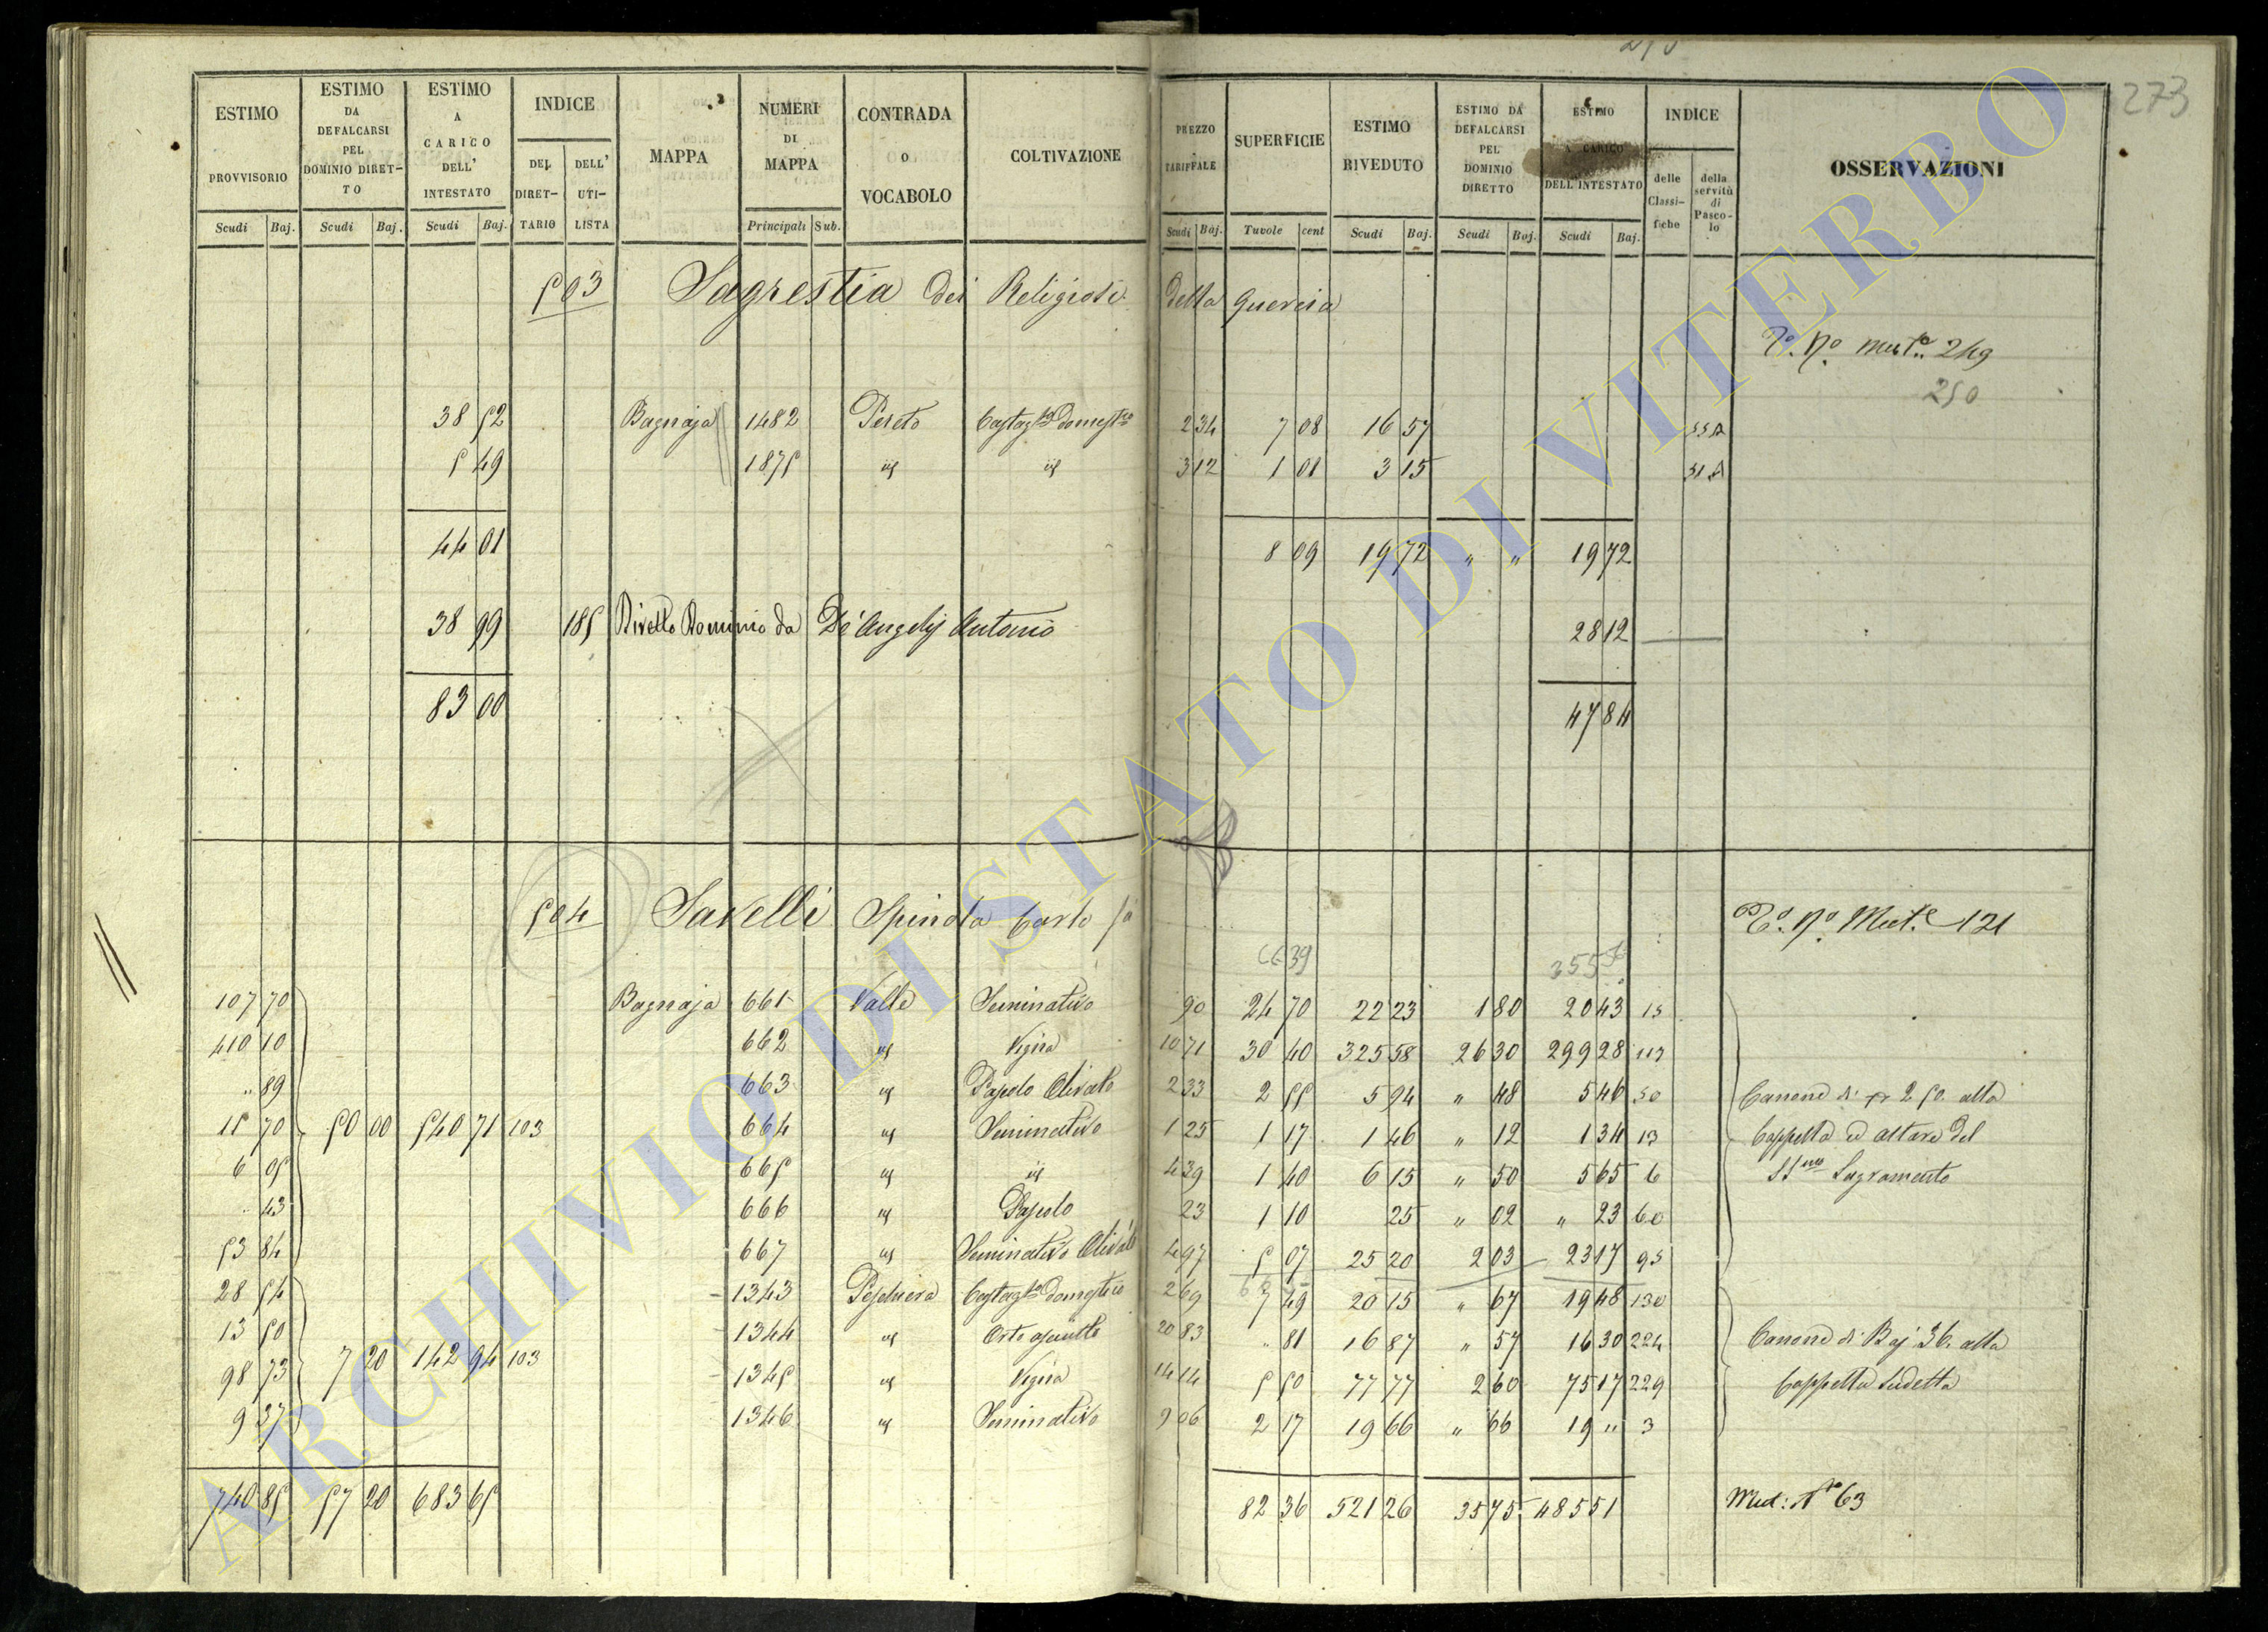 273
ESTIMO PROVVISORIO | ESTIMO DA DEFALCARSI PEL DOMINIO DIRETTO | ESTIMO A CARICO DELL' INTESTATO | INDICE | MAPPA | NUMERI DI MAPPA | CONTRADA O VOCABOLO | COLTIVAZIONE | PREZZO TARIFFALE | SUPERFICIE | ESTIMO RIVEDUTO | ESTIMO DA DEFALCARSI PEL DOMINIO DIRETTO | ESTIMO A CARICO DELL'INTESTATO | INDICE | OSSERVAZIONI
DEL DIRET-TARIO | DELL' UTI-LISTA | delle Classi-fiche | della servitù di Pasco-lo
Scudi | Baj. | Scudi | Baj. | Scudi | Baj. | Principali | Sub. | Scudi | Baj. | Tavole | cent | Scudi | Baj. | Scudi | Baj. | Scudi | Baj.
503 Sagrestia dei Religiosi della Quercia
249
250
38 52 Bagnaja 1482 Pereto Castag.to domest.co 2 34 7 08 16 57
5 49 1875 id id 3 12 1 01 3 15
44 01 8 09 19 72 " " 19 72
38 99 185 Livello Dominio da De Angelis Antonio 28 12
83 00 47 84
504 Savelli Spinola Carlo
121
66 39 355 56
107 70 Bagnaja 661 Valle Seminativo 90 24 70 22 23 1 80 20 43 15
410 10 662 id Vigna 10 71 30 40 325 58 26 30 299 28 113
" 89 663 id Pascolo Olivato 2 33 2 55 5 94 " 48 5 46 50 Canone di 2 50 alla
15 70 50 00 540 71 103 664 id Seminativo 1 25 1 17 1 46 " 12 1 34 13 Cappella ed altare del
6 05 665 id id 4 39 1 40 6 15 " 50 5 65 6 SSmo Sagramento
" 43 666 id Pascolo 23 1 10 25 " 02 " 23 60
53 84 667 id Seminativo Olivato 4 97 5 07 25 20 2 03 23 17 95
28 54 1343 Peschiera Castag.to domestico 2 69 7 49 20 15 " 67 19 48 130
13 50 1344 id Orto asciutto 20 83 " 81 16 87 " 57 16 30 224 Canone di Baj 36 alla
98 73 7 20 142 94 103 1345 id Vigna 14 14 5 50 77 77 2 60 75 17 229 Cappella sudetta
9 37 1346 id Seminativo 9 06 2 17 19 66 " 66 19 " 3
740 85 57 20 683 65 82 36 521 26 35 75 485 51 63
ARCHIVIO DI STATO DI VITERBO